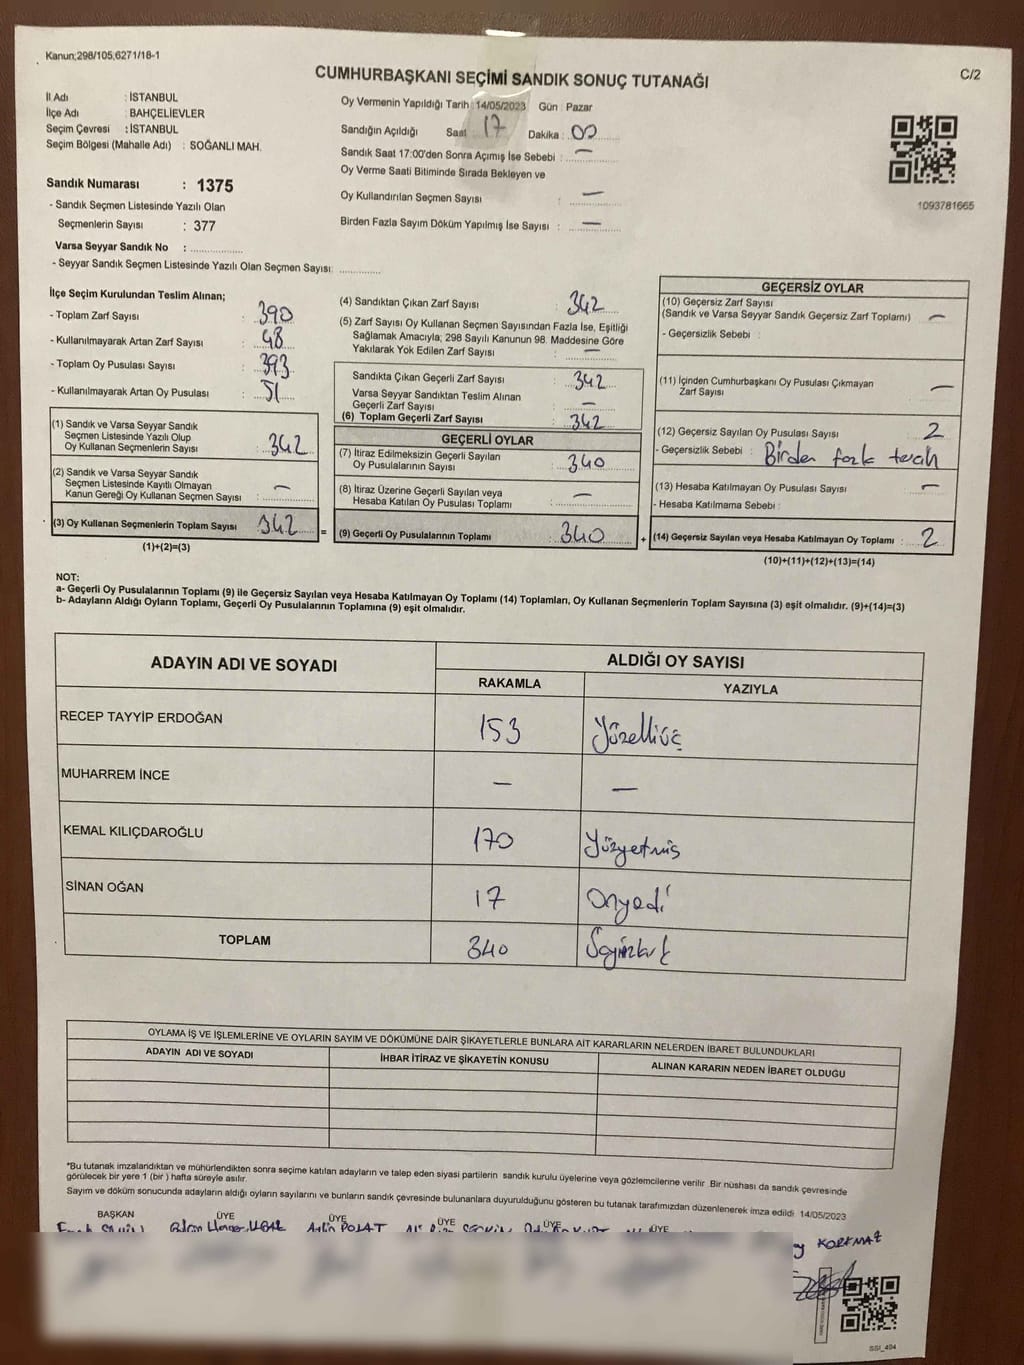 Kanun;298/105,6271/18-1
C/2
CUMHURBAŞKANI SEÇİMİ SANDIK SONUÇ TUTANAĞI
İl Adı : İSTANBUL
İlçe Adı : BAHÇELİEVLER
Seçim Çevresi : İSTANBUL
Seçim Bölgesi (Mahalle Adı) : SOĞANLI MAH.
Sandık Numarası : 1375
- Sandık Seçmen Listesinde Yazılı Olan
Seçmenlerin Sayısı : 377
Varsa Seyyar Sandık No : ..............
- Seyyar Sandık Seçmen Listesinde Yazılı Olan Seçmen Sayısı: ............
Oy Vermenin Yapıldığı Tarih : 14/05/2023 Gün : Pazar
Sandığın Açıldığı Saat 17 Dakika : 00
Sandık Saat 17:00'den Sonra Açımış İse Sebebi : —
Oy Verme Saati Bitiminde Sırada Bekleyen ve
Oy Kullandırılan Seçmen Sayısı : —
Birden Fazla Sayım Döküm Yapılmış İse Sayısı : —
1093781665
İlçe Seçim Kurulundan Teslim Alınan;
- Toplam Zarf Sayısı : 390
- Kullanılmayarak Artan Zarf Sayısı : 48
- Toplam Oy Pusulası Sayısı : 393
- Kullanılmayarak Artan Oy Pusulası : 51
(1) Sandık ve Varsa Seyyar Sandık
Seçmen Listesinde Yazılı Olup
Oy Kullanan Seçmenlerin Sayısı : 342
(2) Sandık ve Varsa Seyyar Sandık
Seçmen Listesinde Kayıtlı Olmayan
Kanun Gereği Oy Kullanan Seçmen Sayısı : —
(3) Oy Kullanan Seçmenlerin Toplam Sayısı 342 =
(1)+(2)=(3)
(4) Sandıktan Çıkan Zarf Sayısı : 342
(5) Zarf Sayısı Oy Kullanan Seçmen Sayısından Fazla İse, Eşitliği
Sağlamak Amacıyla; 298 Sayılı Kanunun 98. Maddesine Göre
Yakılarak Yok Edilen Zarf Sayısı : —
Sandıkta Çıkan Geçerli Zarf Sayısı : 342
Varsa Seyyar Sandıktan Teslim Alınan
Geçerli Zarf Sayısı : —
(6) Toplam Geçerli Zarf Sayısı : 342
GEÇERLİ OYLAR
(7) İtiraz Edilmeksizin Geçerli Sayılan
Oy Pusulalarının Sayısı : 340
(8) İtiraz Üzerine Geçerli Sayılan veya
Hesaba Katılan Oy Pusulası Toplamı : —
(9) Geçerli Oy Pusulalarının Toplamı : 340 +
GEÇERSİZ OYLAR
(10) Geçersiz Zarf Sayısı
(Sandık ve Varsa Seyyar Sandık Geçersiz Zarf Toplamı) : —
- Geçersizlik Sebebi :
(11) İçinden Cumhurbaşkanı Oy Pusulası Çıkmayan
Zarf Sayısı : —
(12) Geçersiz Sayılan Oy Pusulası Sayısı : 2
- Geçersizlik Sebebi : Birden fazla tercih
(13) Hesaba Katılmayan Oy Pusulası Sayısı : —
- Hesaba Katılmama Sebebi :
(14) Geçersiz Sayılan veya Hesaba Katılmayan Oy Toplamı : 2
(10)+(11)+(12)+(13)=(14)
NOT:
a- Geçerli Oy Pusulalarının Toplamı (9) ile Geçersiz Sayılan veya Hesaba Katılmayan Oy Toplamı (14) Toplamları, Oy Kullanan Seçmenlerin Toplam Sayısına (3) eşit olmalıdır. (9)+(14)=(3)
b- Adayların Aldığı Oyların Toplamı, Geçerli Oy Pusulalarının Toplamına (9) eşit olmalıdır.
ADAYIN ADI VE SOYADI ALDIĞI OY SAYISI
RAKAMLA YAZIYLA
RECEP TAYYİP ERDOĞAN 153 Yüzelliüç
MUHARREM İNCE — —
KEMAL KILIÇDAROĞLU 170 Yüzyetmiş
SİNAN OĞAN 17 Onyedi
TOPLAM 340
OYLAMA İŞ VE İŞLEMLERİNE VE OYLARIN SAYIM VE DÖKÜMÜNE DAİR ŞİKAYETLERLE BUNLARA AİT KARARLARIN NELERDEN İBARET BULUNDUKLARI
ADAYIN ADI VE SOYADI İHBAR İTİRAZ VE ŞİKAYETİN KONUSU ALINAN KARARIN NEDEN İBARET OLDUĞU
*Bu tutanak imzalandıktan ve mühürlendikten sonra seçime katılan adayların ve talep eden siyasi partilerin sandık kurulu üyelerine veya gözlemcilerine verilir. Bir nüshası da sandık çevresinde
görülecek bir yere 1 (bir ) hafta süreyle asılır.
Sayım ve döküm sonucunda adayların aldığı oyların sayılarını ve bunların sandık çevresinde bulunanlara duyurulduğunu gösteren bu tutanak tarafımızdan düzenlenerek imza edildi 14/05/2023
BAŞKAN ÜYE ÜYE ÜYE ÜYE ÜYE
Aylin POLAT
KORKMAZ
SSI_494